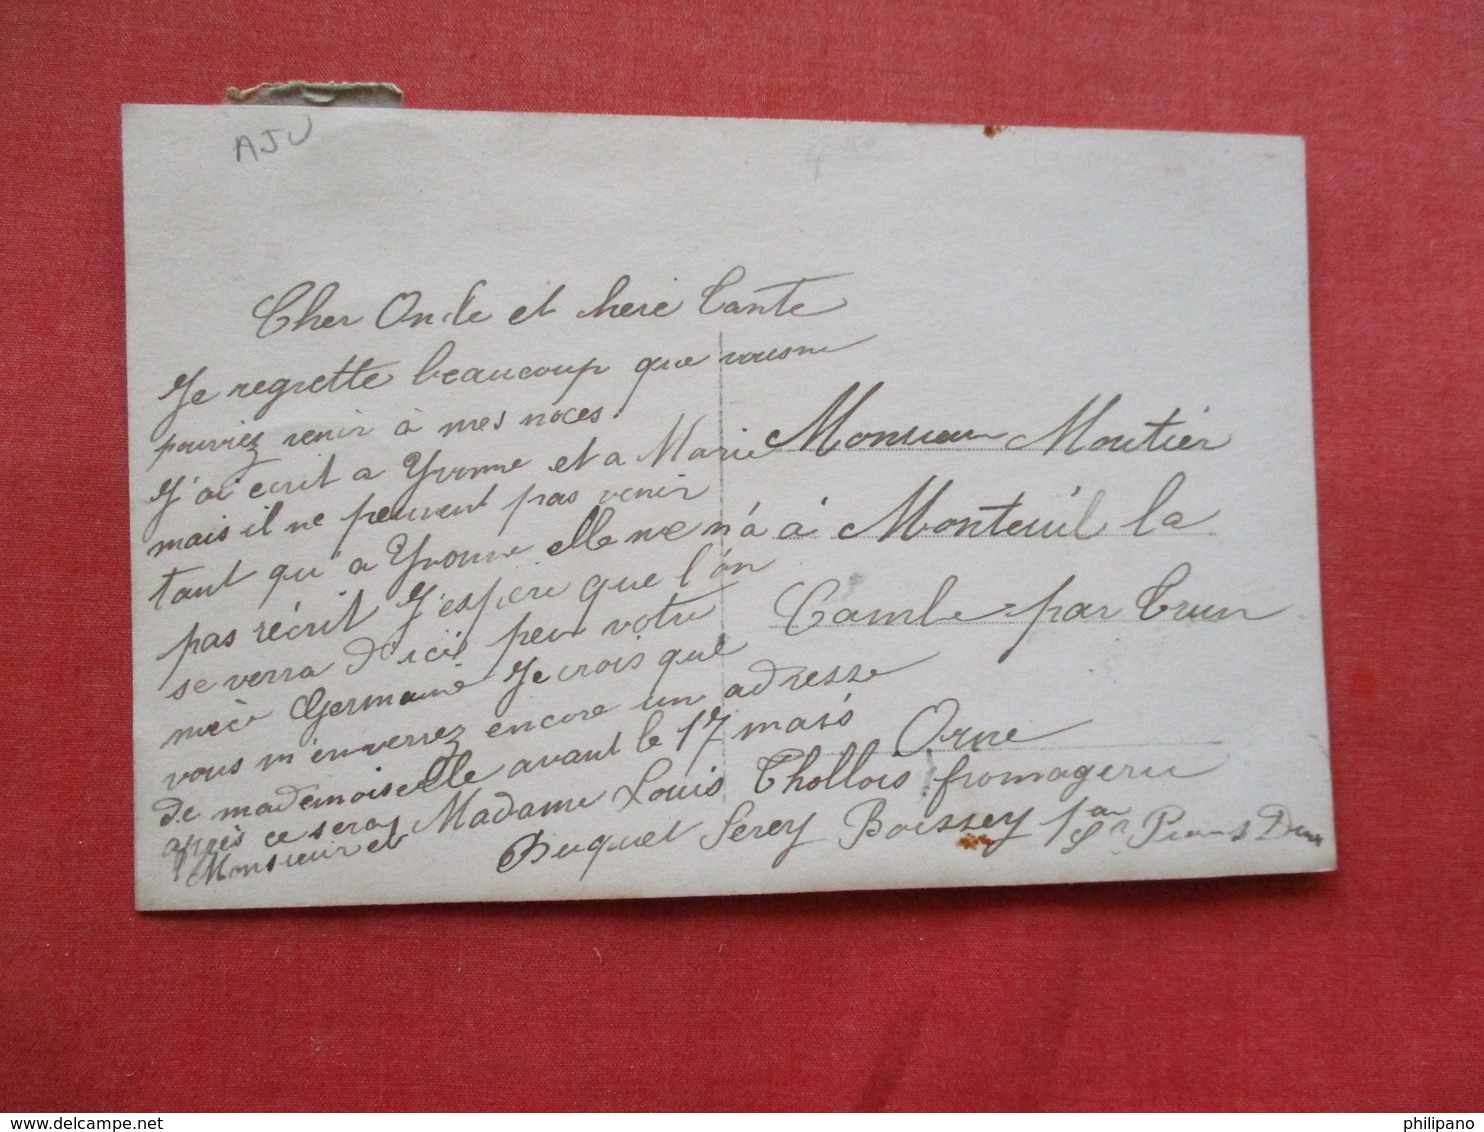 AJU
4 50
Cher Oncle et chere Tante
Je regrette beaucoup que vous ne
pouviez venir à mes noces.
J'ai ecrit a Yvonne et a Marie
mais il ne peuvent pas venir
tant qu'a Yvonne elle ne n'a
pas récrit J'espere que l'on
se verra d'ici peu votre
niece Germaine Je crois que
vous m'enverrez encore un adresse
de mademoiselle avant le 17 mais
après ce sera
Monsieur et Madame Louis Thollois fromagerie
Duquet Serey Boissey par St Pierre S Dives
Monsieur Moutier
à Monteuil la
Camble par Trun
Orne
philipano